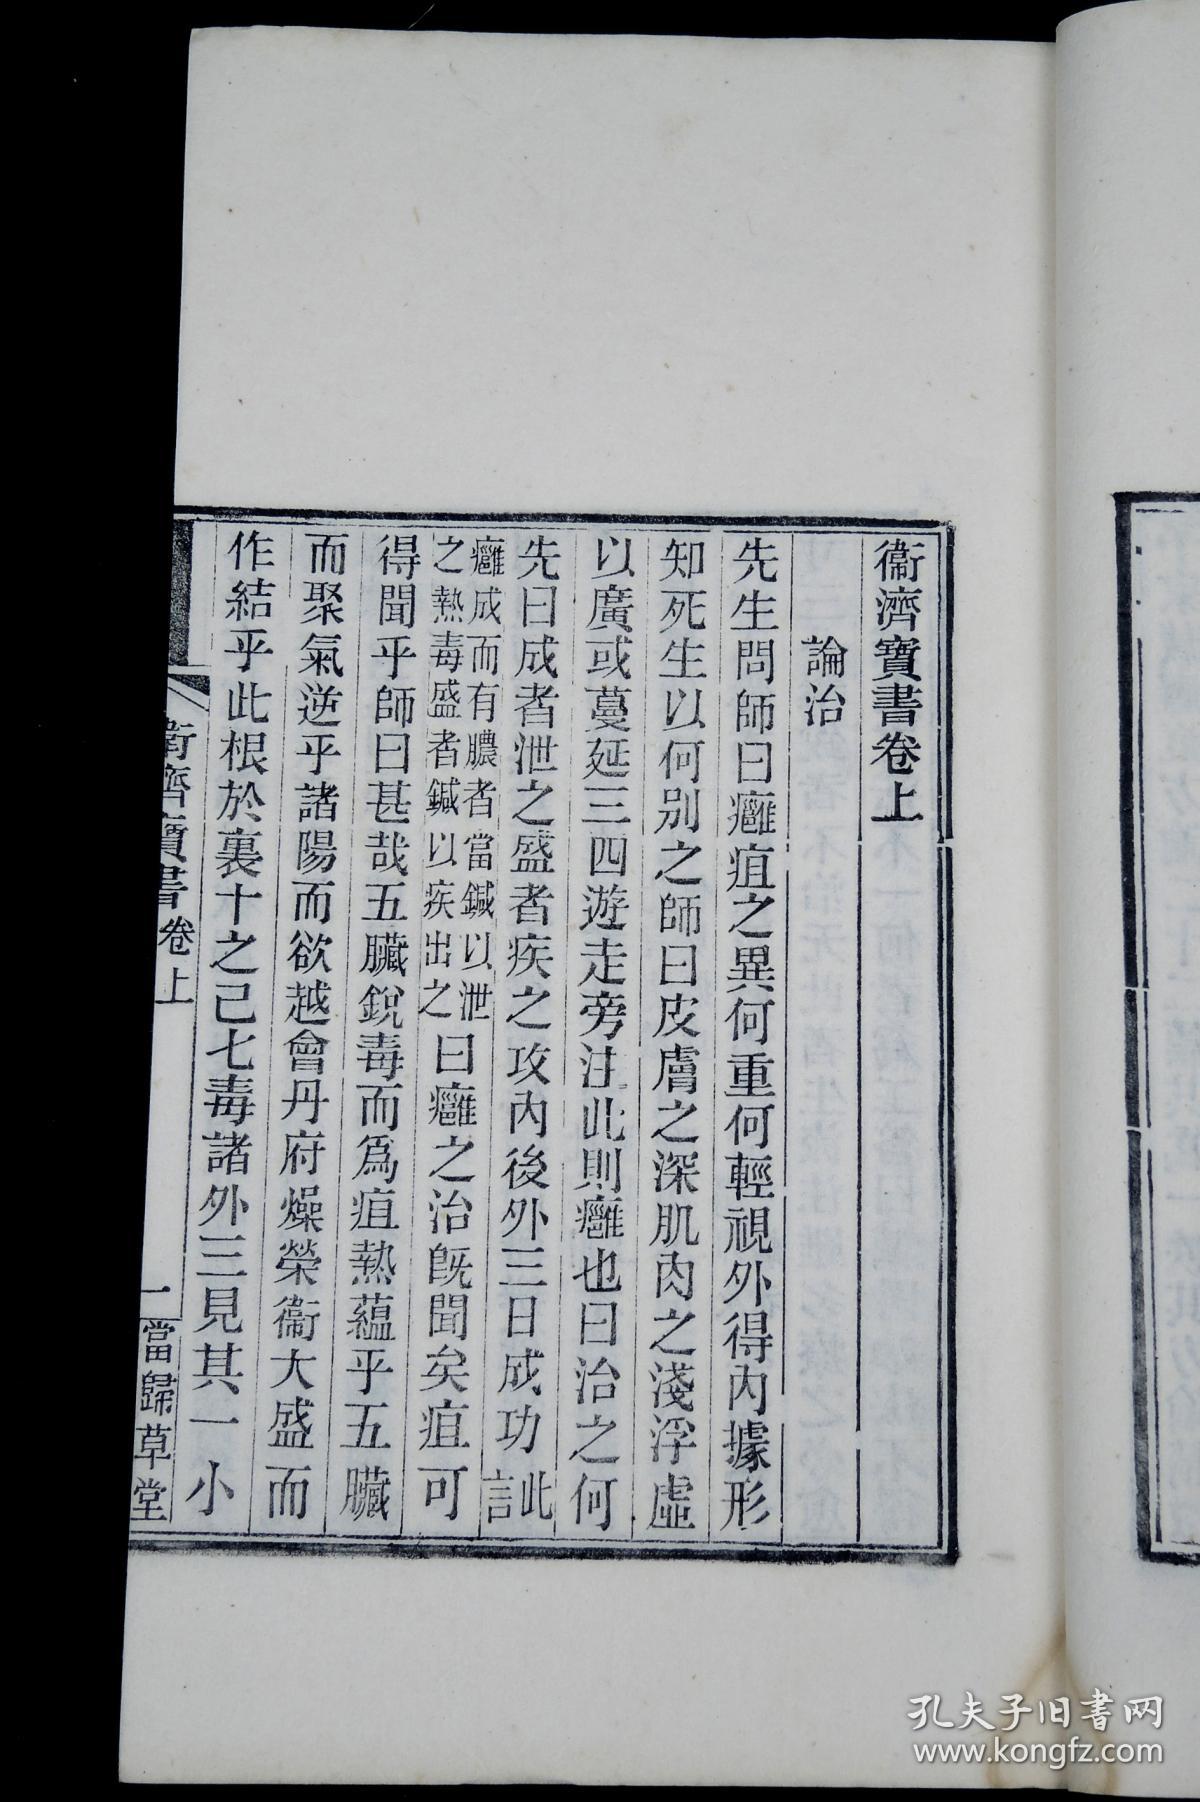 衞濟寶書卷上
論治
先生問師曰癰疽之異何重何輕視外得內據形
知死生以何別之師曰皮膚之深肌肉之淺浮虛
以廣或蔓延三四遊走旁注此則癰也曰治之何
先曰成者泄之盛者疾之攻內後外三日成功此言
癰成而有膿者當鍼以泄
之熱毒盛者鍼以疾出之
曰癰之治既聞矣疽可
得聞乎師曰甚哉五臟銳毒而爲疽熱蘊乎五臟
而聚氣逆乎諸陽而欲越會丹府燥榮衞大盛而
作結乎此根於裏十之己七毒諸外三見其一小
衞濟寶書卷上
一
當歸草堂
孔夫子旧书网
www.kongfz.com